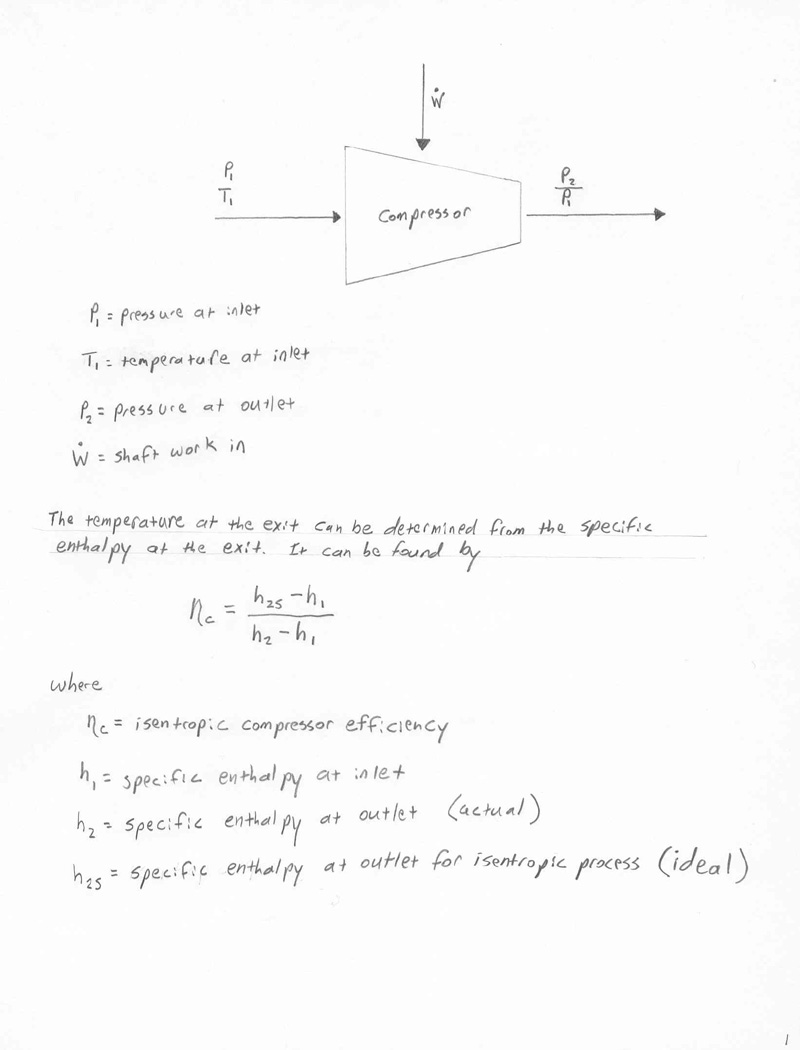 Ẇ
P₁
T₁
Compressor
P₂
P₁
P₁ = pressure at inlet
T₁ = temperature at inlet
P₂ = pressure at outlet
Ẇ = shaft work in
The temperature at the exit can be determined from the specific
enthalpy at the exit. It can be found by
η_c = (h₂ₛ - h₁) / (h₂ - h₁)
where
η_c = isentropic compressor efficiency
h₁ = specific enthalpy at inlet
h₂ = specific enthalpy at outlet (actual)
h₂ₛ = specific enthalpy at outlet for isentropic process (ideal)
1